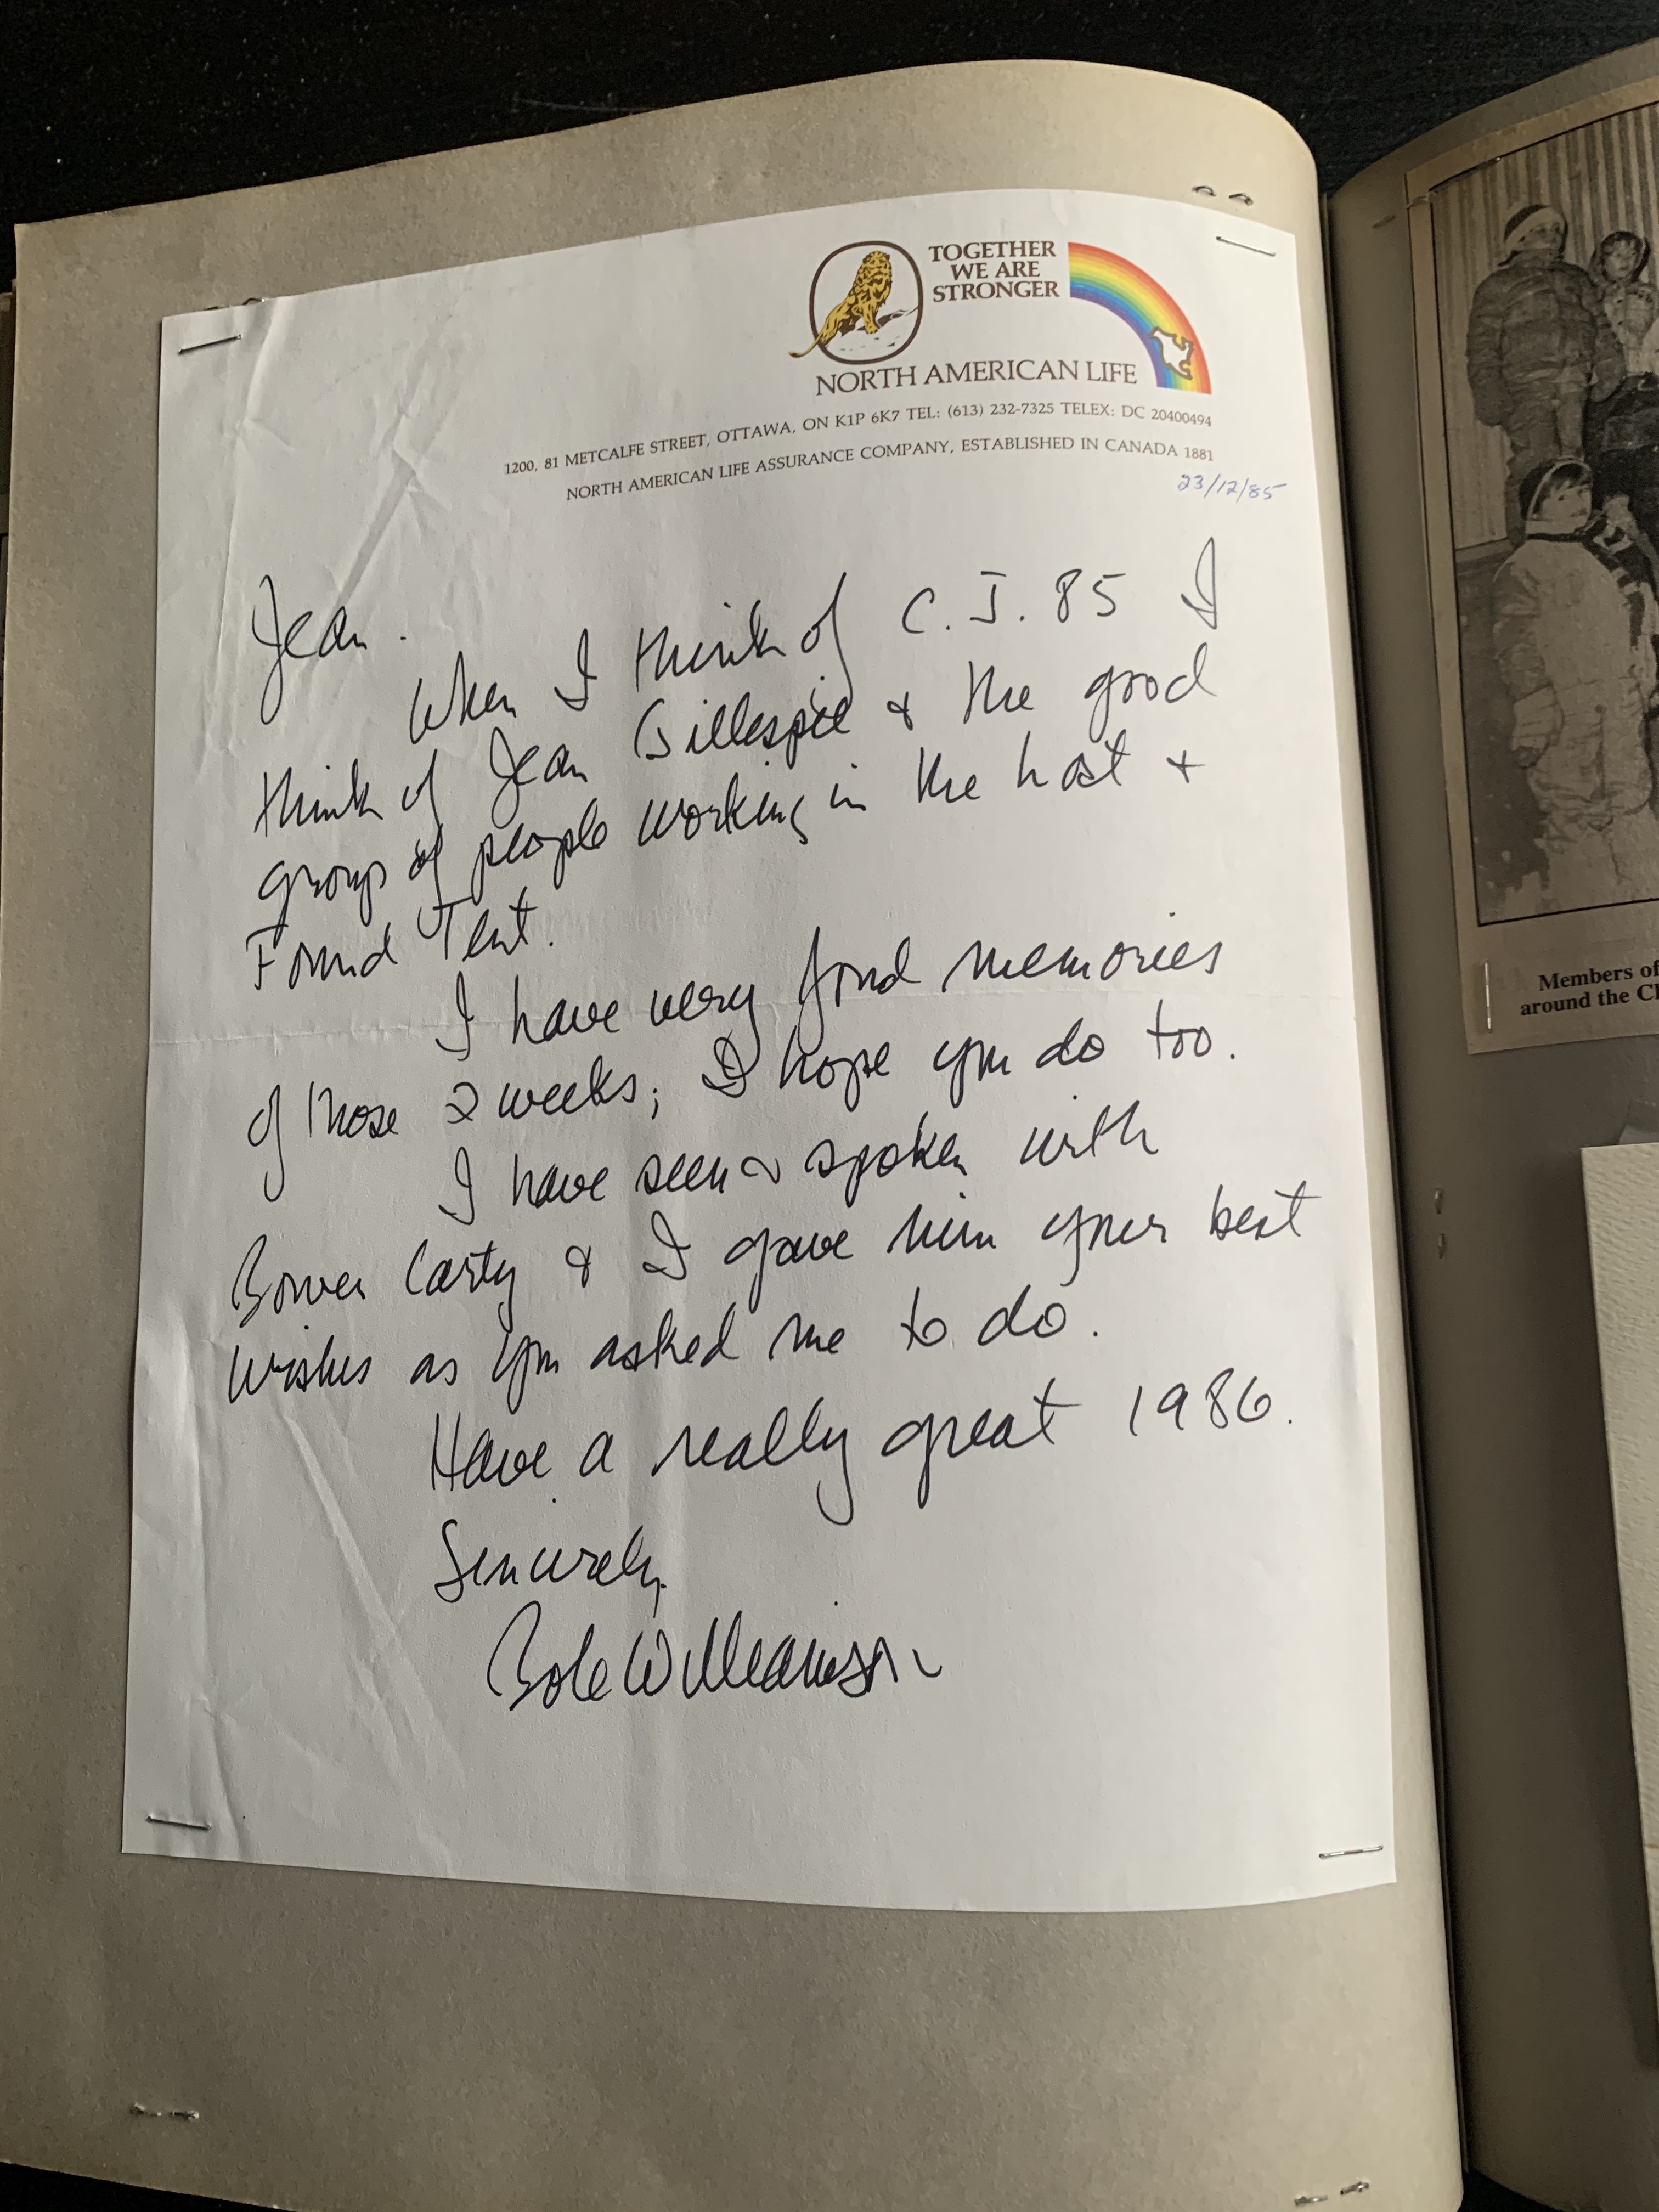 TOGETHER
WE ARE
STRONGER
NORTH AMERICAN LIFE
1200, 81 METCALFE STREET, OTTAWA, ON K1P 6K7 TEL: (613) 232-7325 TELEX: DC 20400494
NORTH AMERICAN LIFE ASSURANCE COMPANY, ESTABLISHED IN CANADA 1881
23/12/85
Jean.
When I think of C.J. 85 I
think of Jean Gillespie & the good
group of people working in the lost +
Found Tent.
I have very fond memories
of those 2 weeks; I hope you do too.
I have seen & spoken with
Bower Carty & I gave him your best
wishes as you asked me to do.
Have a really great 1986.
Sincerely,
Bob Williamson
Members of
around the